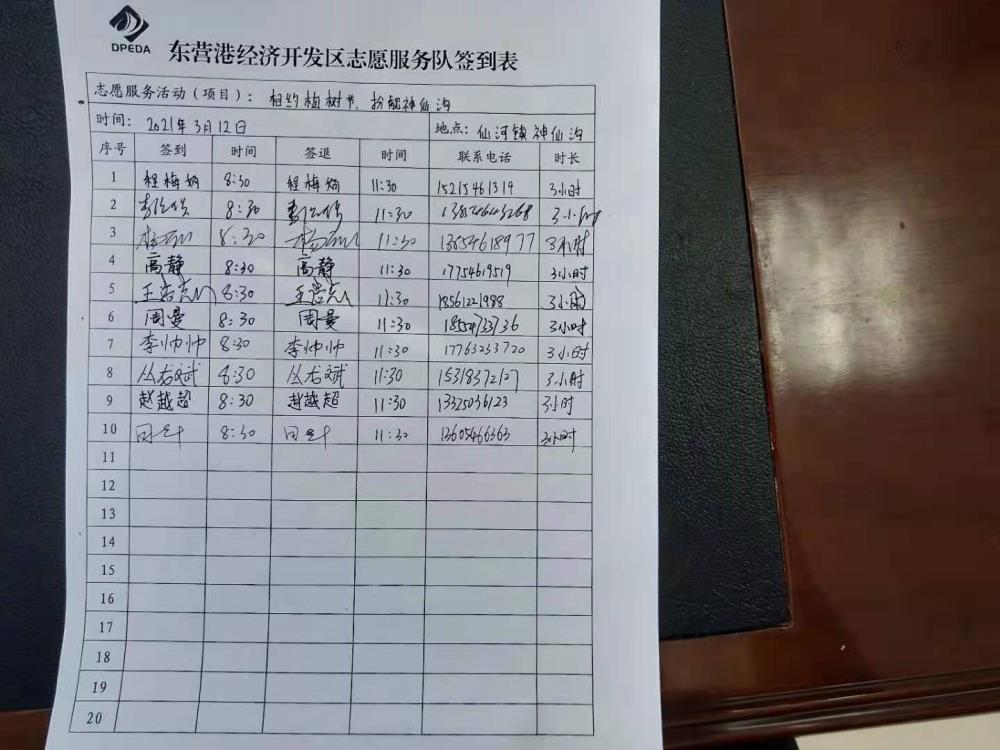 DPEDA
东营港经济开发区志愿服务队签到表
志愿服务活动（项目）： 相约植树节，扮靓神仙沟
时间： 2021年3月12日 地点：仙河镇神仙沟
序号 签到 时间 签退 时间 联系电话 时长
1 程梅娟 8:30 程梅娟 11:30 15215461319 3小时
2 8:30 11:30 3小时
3 8:30 11:30 13654618977 3小时
4 高静 8:30 高静 11:30 17754619519 3小时
5 8:30 11:30 18561221988 3小时
6 周曼 8:30 周曼 11:30 18554733736 3小时
7 李帅帅 8:30 李帅帅 11:30 17763233720 3小时
8 丛龙斌 8:30 丛龙斌 11:30 15318372127 3小时
9 赵越超 8:30 赵越超 11:30 13325036123 3小时
10 8:30 11:30 13605466363 3小时
11
12
13
14
15
16
17
18
19
20